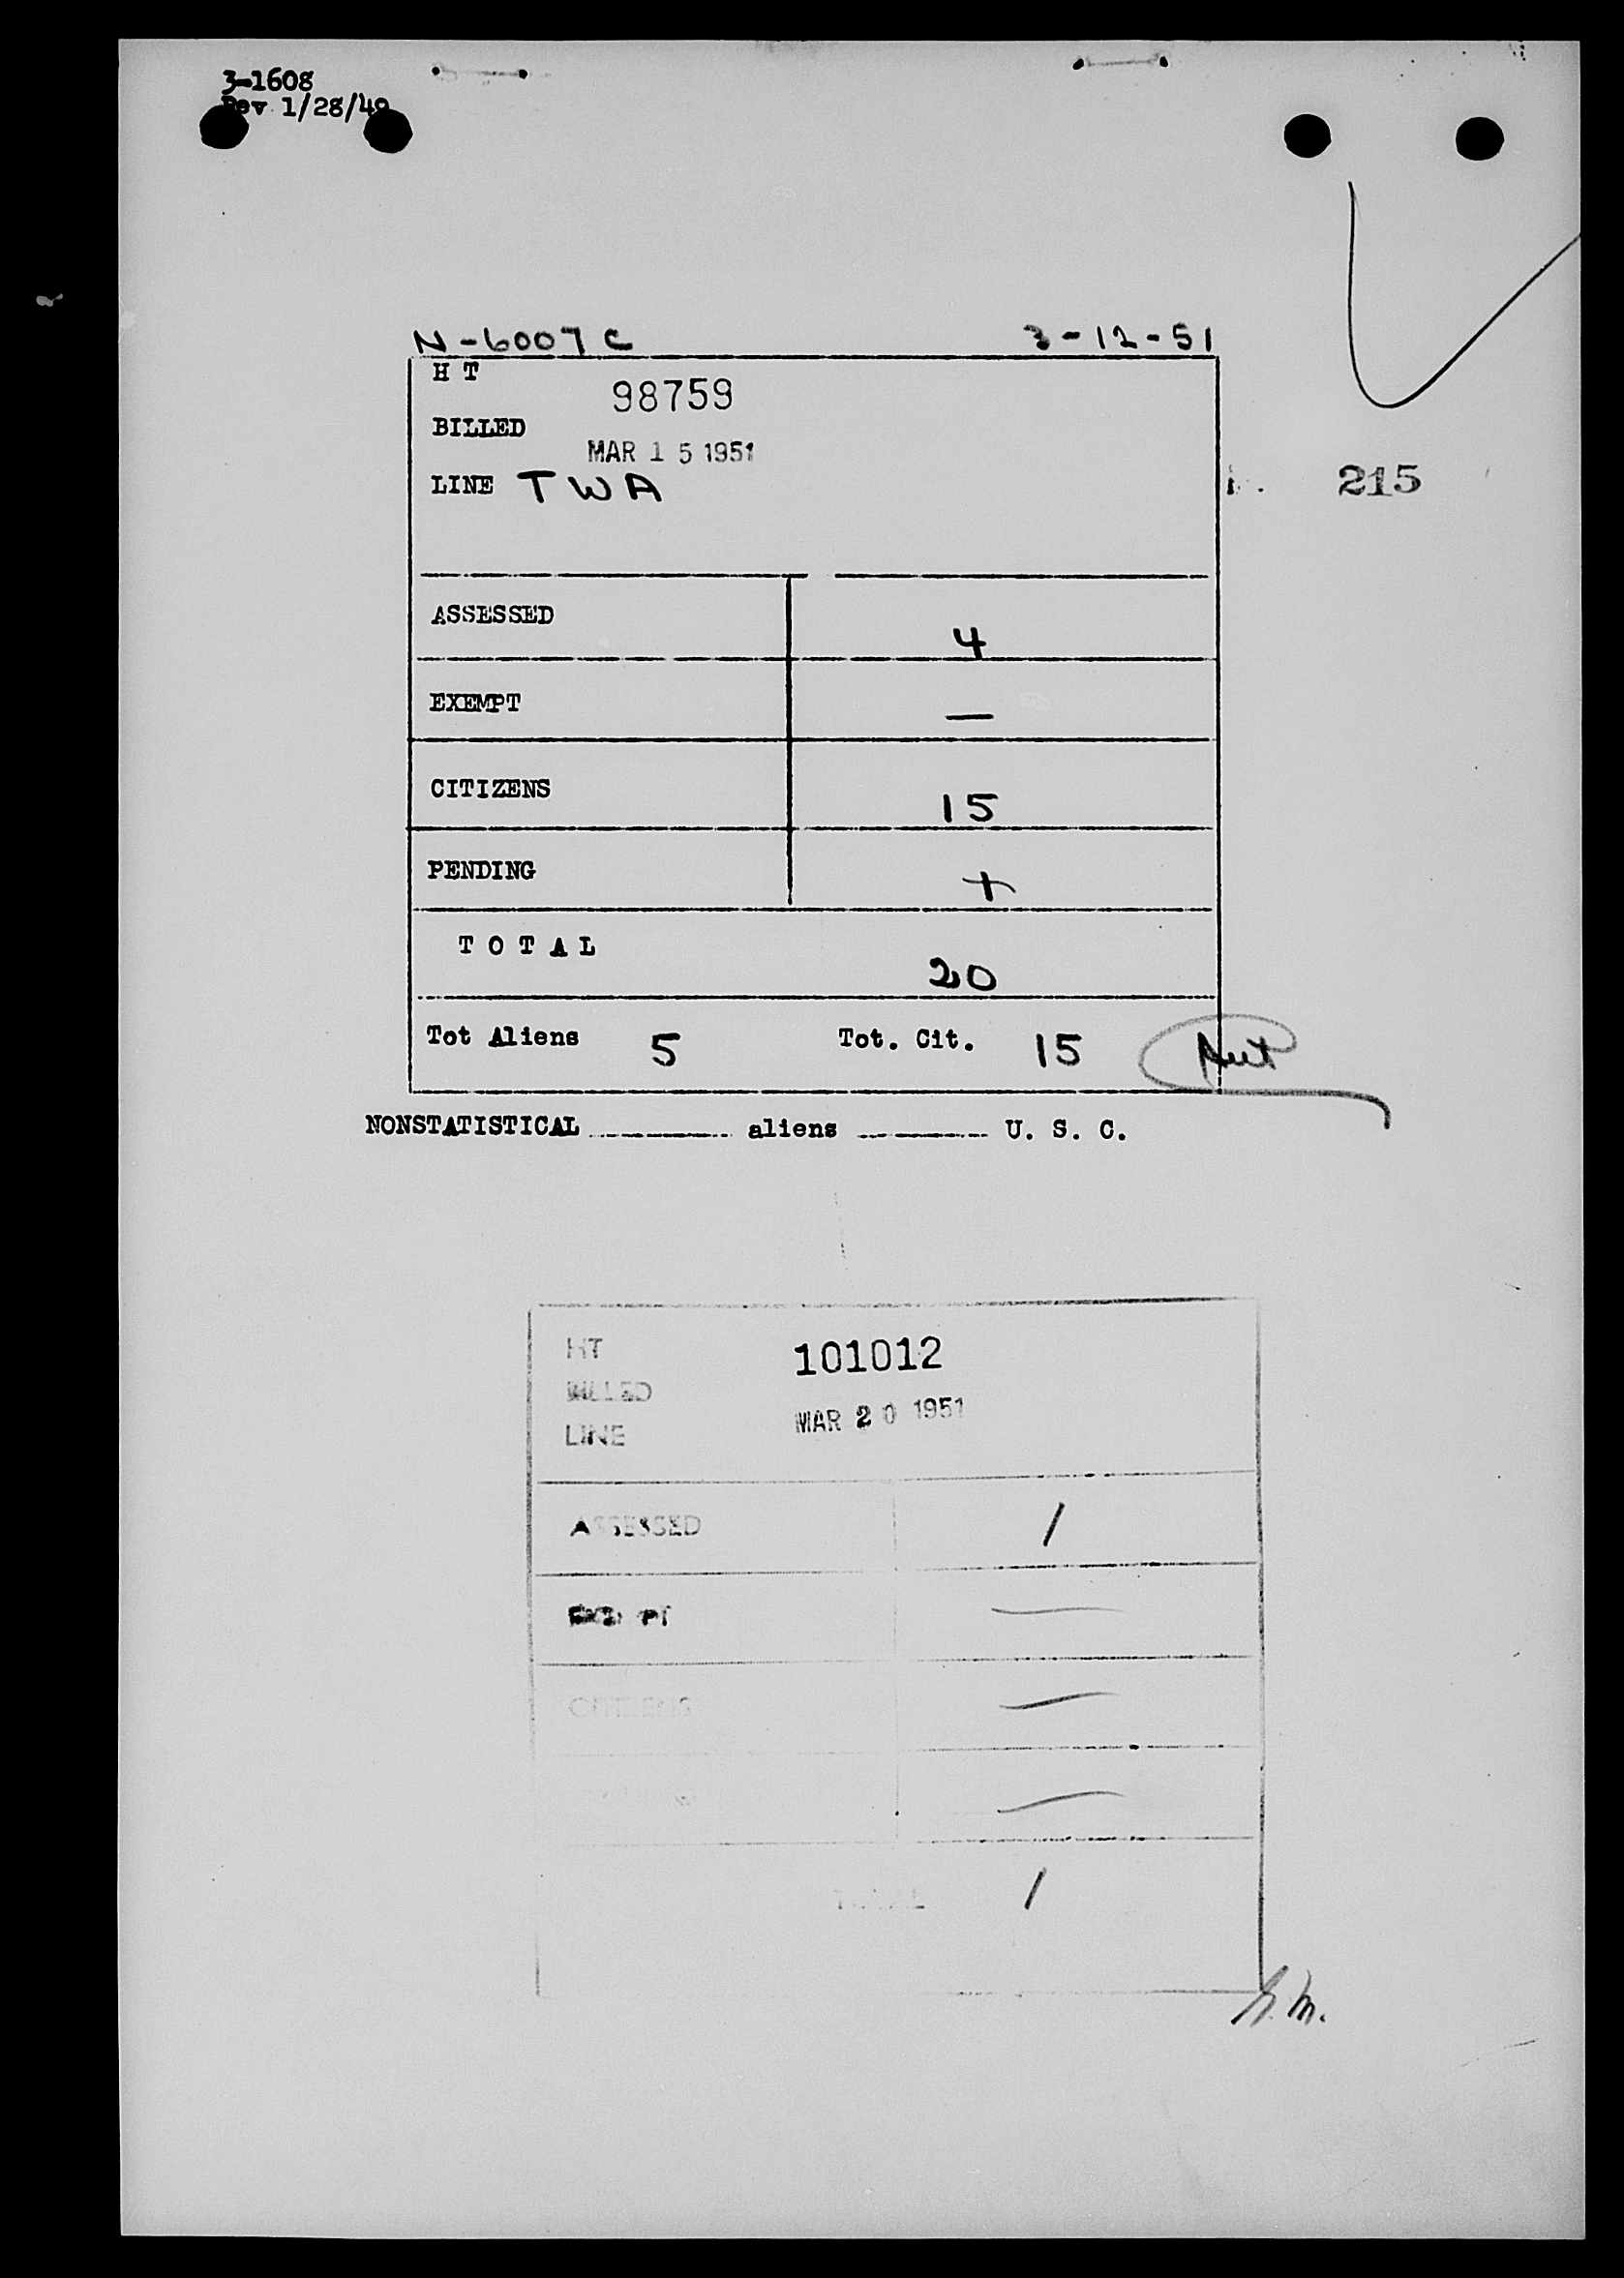 3-1608
Rev 1/28/49
N-6007C 3-12-51
H T
98759
BILLED
MAR 15 1951
LINE TWA
215
ASSESSED 4
EXEMPT —
CITIZENS 15
PENDING
TOTAL 20
Tot Aliens 5 Tot. Cit. 15
NONSTATISTICAL aliens U. S. C.
HT 101012
BILLED
MAR 20 1951
LINE
ASSESSED 1
EXEMPT —
CITIZENS —
—
TOTAL 1